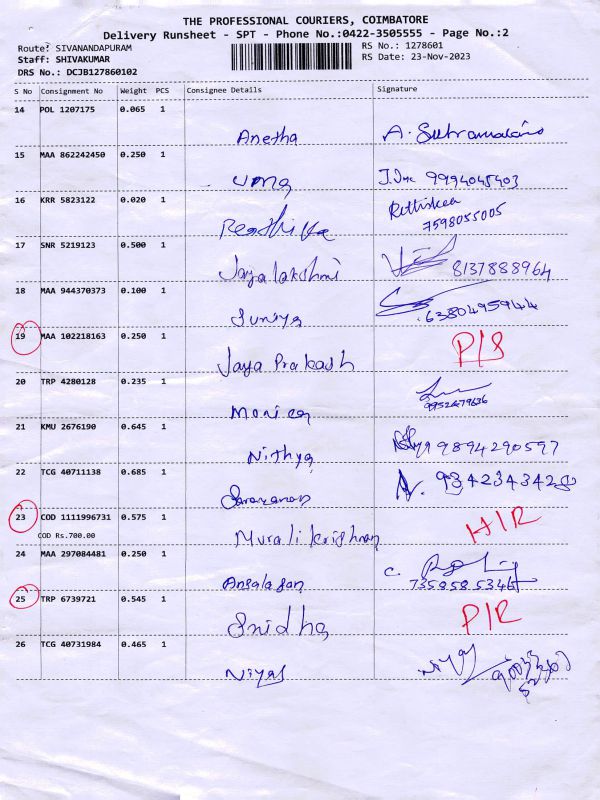 THE PROFESSIONAL COURIERS, COIMBATORE
Delivery Runsheet - SPT - Phone No.:0422-3505555 - Page No.:2
Route: SIVANANDAPURAM
RS No.: 1278601
Staff: SHIVAKUMAR
RS Date: 23-Nov-2023
DRS No.: DCJB127860102
S No Consignment No Weight PCS Consignee Details Signature
14 POL 1207175 0.065 1
Anetha A. Subramalani
15 MAA 862242450 0.250 1
uma J.Uma 9994045403
16 KRR 5823122 0.020 1
Reathika Rithikaa
7598055005
17 SNR 5219123 0.500 1
Jayalakshmi 8137888964
18 MAA 944370373 0.100 1
Suniya 6380495944
19 MAA 102218163 0.250 1
Jaya Prakash P/S
20 TRP 4280128 0.235 1
Monica 9952479636
21 KMU 2676190 0.645 1
Nithya 9894290597
22 TCG 40711138 0.685 1
Saravanan N. 9342343428
23 COD 1111996731 0.575 1
COD Rs.700.00
Muralikrishnan H/R
24 MAA 297084481 0.250 1
Angalagan C.
7358585346
25 TRP 6739721 0.545 1
Snidha P/R
26 TCG 40731984 0.465 1
Niyas